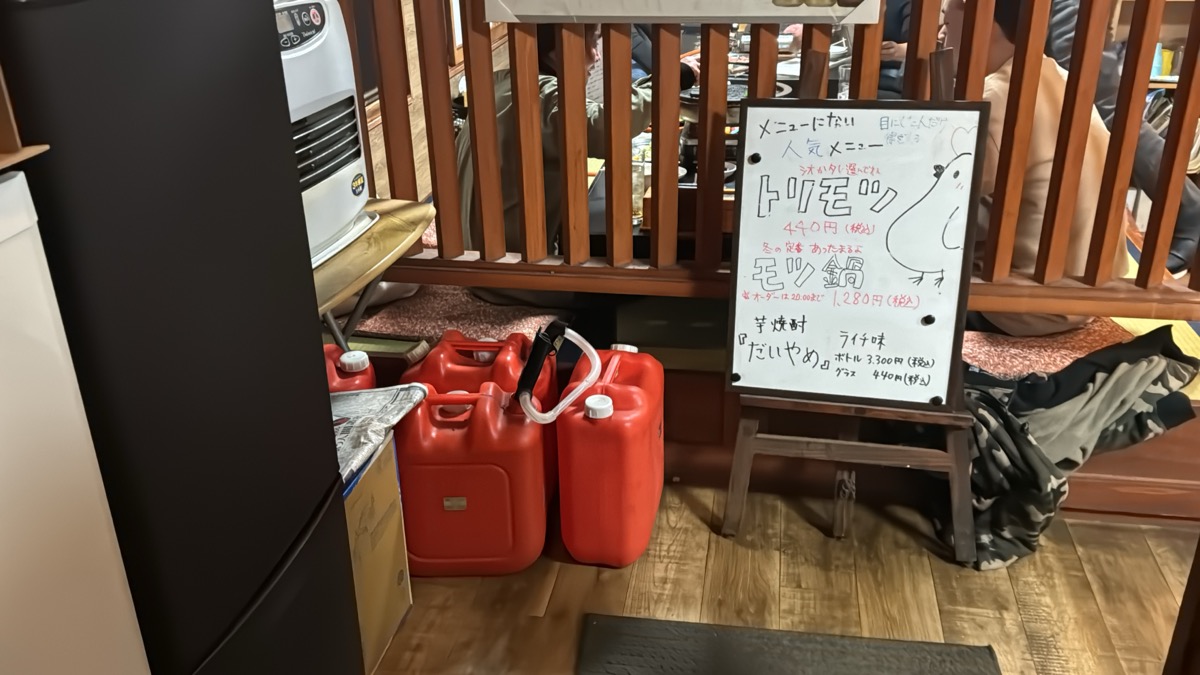 メニューにない
目にした人だけ
人気メニュー
シオかタレ選んでね
トリモツ
440円(税込)
冬の定番 あったまるよ
モツ鍋
※オーダーは20:00まで 1,280円(税込)
芋焼酎
『だいやめ』
ライチ味
ボトル 3,300円(税込)
グラス 440円(税込)